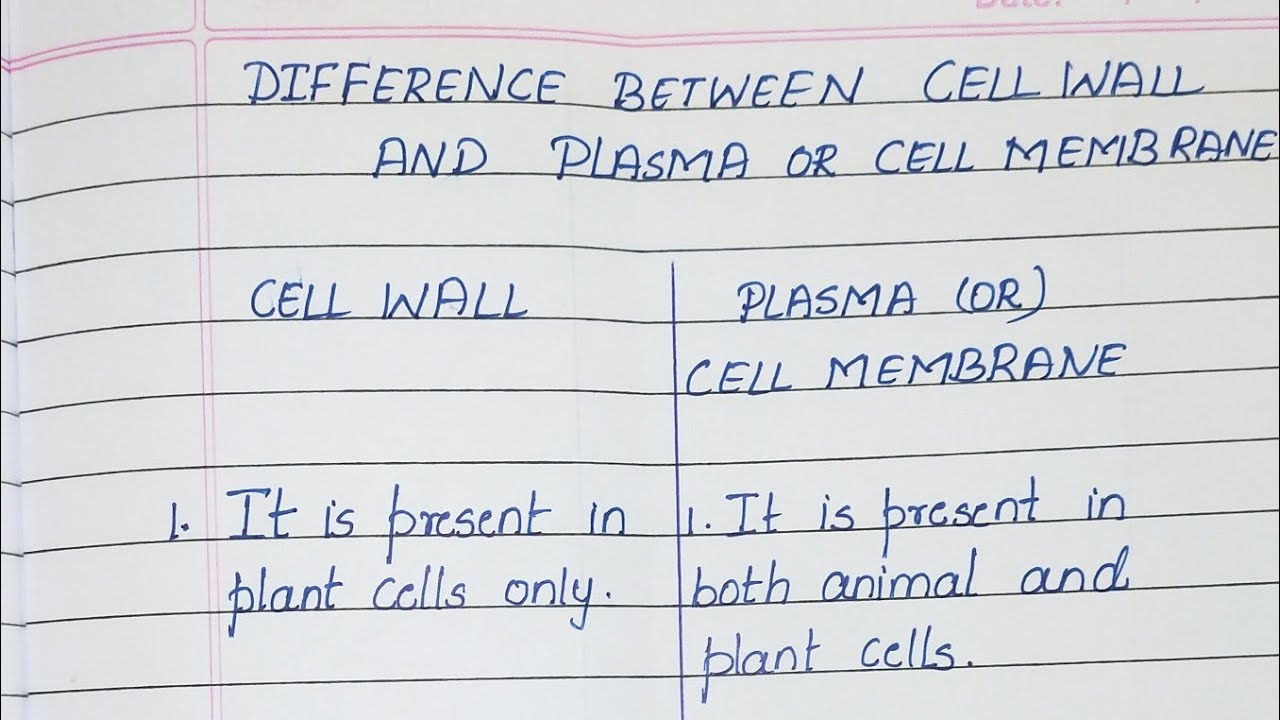 DIFFERENCE BETWEEN CELL WALL
AND PLASMA OR CELL MEMBRANE
CELL WALL
PLASMA (OR)
CELL MEMBRANE
1. It is present in
plant cells only.
1. It is present in
both animal and
plant cells.